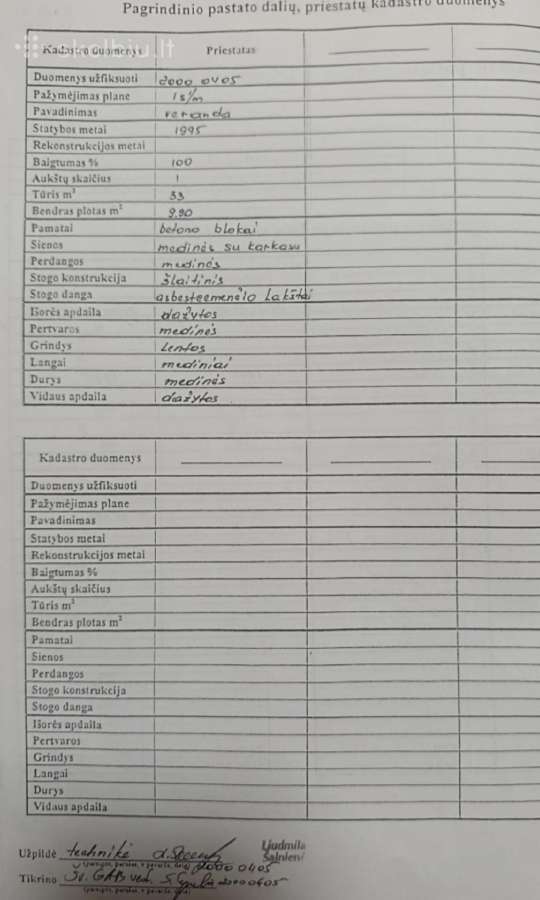 Pagrindinio pastato dalių, priestatų kadastro duomenys
skelbiu.lt
Kadastro duomenys Priestatas
Duomenys užfiksuoti 2000 04 05
Pažymėjimas plane 1s/m
Pavadinimas veranda
Statybos metai 1995
Rekonstrukcijos metai
Baigtumas % 100
Aukštų skaičius 1
Tūris m³ 33
Bendras plotas m² 9.90
Pamatai betono blokai
Sienos medinės su karkasu
Perdangos medinės
Stogo konstrukcija šlaitinis
Stogo danga asbestcemenčio lakštai
Išorės apdaila dažytos
Pertvaros medinės
Grindys lentos
Langai mediniai
Durys medinės
Vidaus apdaila dažytos
Kadastro duomenys
Duomenys užfiksuoti
Pažymėjimas plane
Pavadinimas
Statybos metai
Rekonstrukcijos metai
Baigtumas %
Aukštų skaičius
Tūris m³
Bendras plotas m²
Pamatai
Sienos
Perdangos
Stogo konstrukcija
Stogo danga
Išorės apdaila
Pertvaros
Grindys
Langai
Durys
Vidaus apdaila
Užpildė technikė
Liudmila
Šalnienė
2000 04 05
Tikrino
2000 04 05